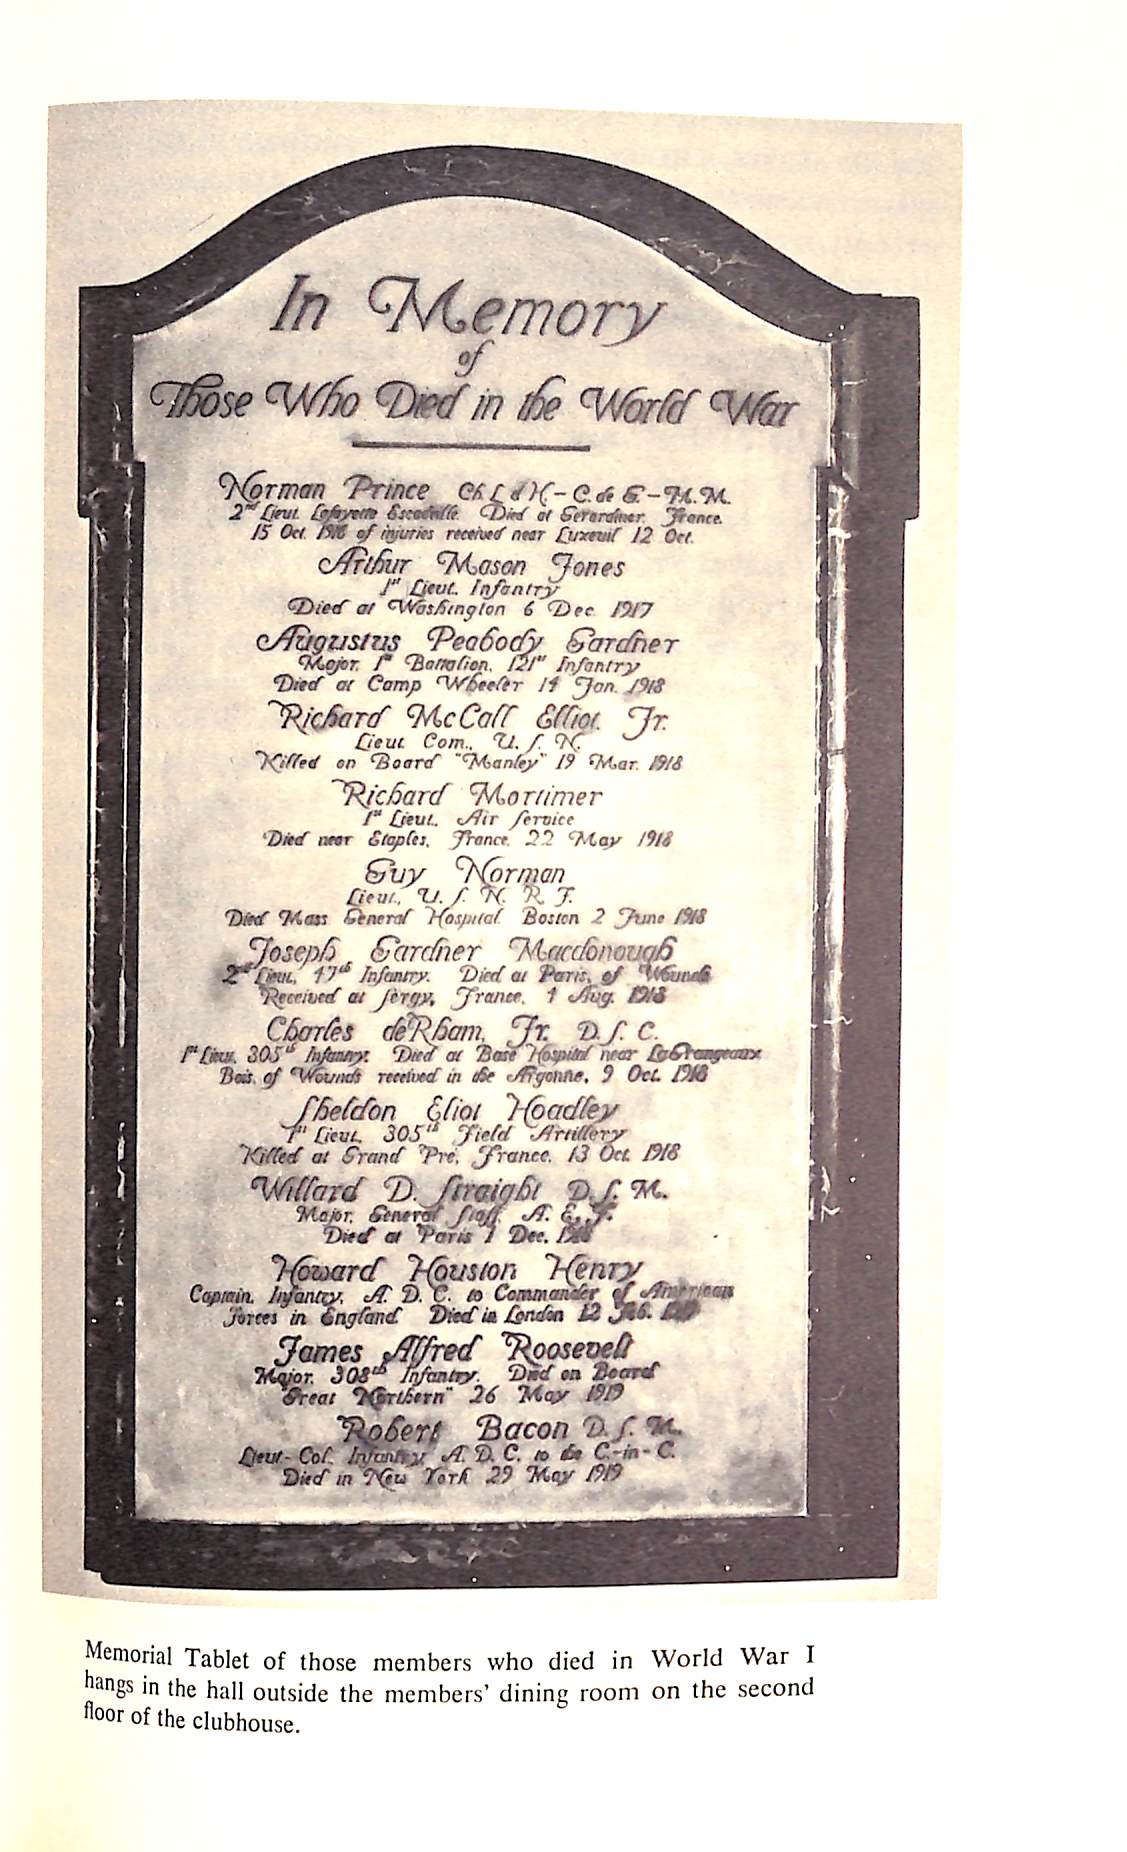 In Memory
of
Those Who Died in the World War
Norman Prince Ch. L. d'H. - C. de G. - M. M.
2nd Lieut. Lafayette Escadrille. Died at Gerardmer, France.
15 Oct. 1916 of injuries received near Luxeuil 12 Oct.
Arthur Mason Jones
1st Lieut. Infantry
Died at Washington 6 Dec. 1917
Augustus Peabody Gardner
Major, 1st Battalion, 121st Infantry
Died at Camp Wheeler 14 Jan. 1918
Richard McCall Elliot, Jr.
Lieut. Com., U. S. N.
Killed on Board "Manley" 19 Mar. 1918
Richard Mortimer
1st Lieut. Air Service
Died near Etaples, France, 22 May 1918
Guy Norman
Lieut., U. S. N. R. F.
Died Mass General Hospital Boston 2 June 1918
Joseph Gardner Macdonough
2nd Lieut. 47th Infantry. Died at Paris, of Wounds
Received at Sergy, France, 1 Aug. 1918
Charles deRham, Jr. D. S. C.
1st Lieut. 305th Infantry. Died at Base Hospital near LaGrangeaux
Bois, of Wounds received in the Argonne, 9 Oct. 1918
Sheldon Eliot Hoadley
1st Lieut. 305th Field Artillery
Killed at Grand Pre, France, 13 Oct. 1918
Willard D. Straight D. S. M.
Major, General Staff, A. E. F.
Died at Paris 1 Dec. 1918
Howard Houston Henry
Captain, Infantry, A. D. C. to Commander of American
Forces in England Died in London 12 Feb.
James Alfred Roosevelt
Major, 308th Infantry. Died on Board
"Great Northern" 26 May 1919
Robert Bacon D. S. M.
Lieut-Col. Infantry A. D. C. to the C-in-C.
Died in New York 29 May 1919
Memorial Tablet of those members who died in World War I
hangs in the hall outside the members' dining room on the second
floor of the clubhouse.